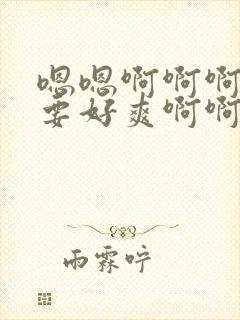 嗯嗯啊啊啊
要好爽啊啊
雨霖咛